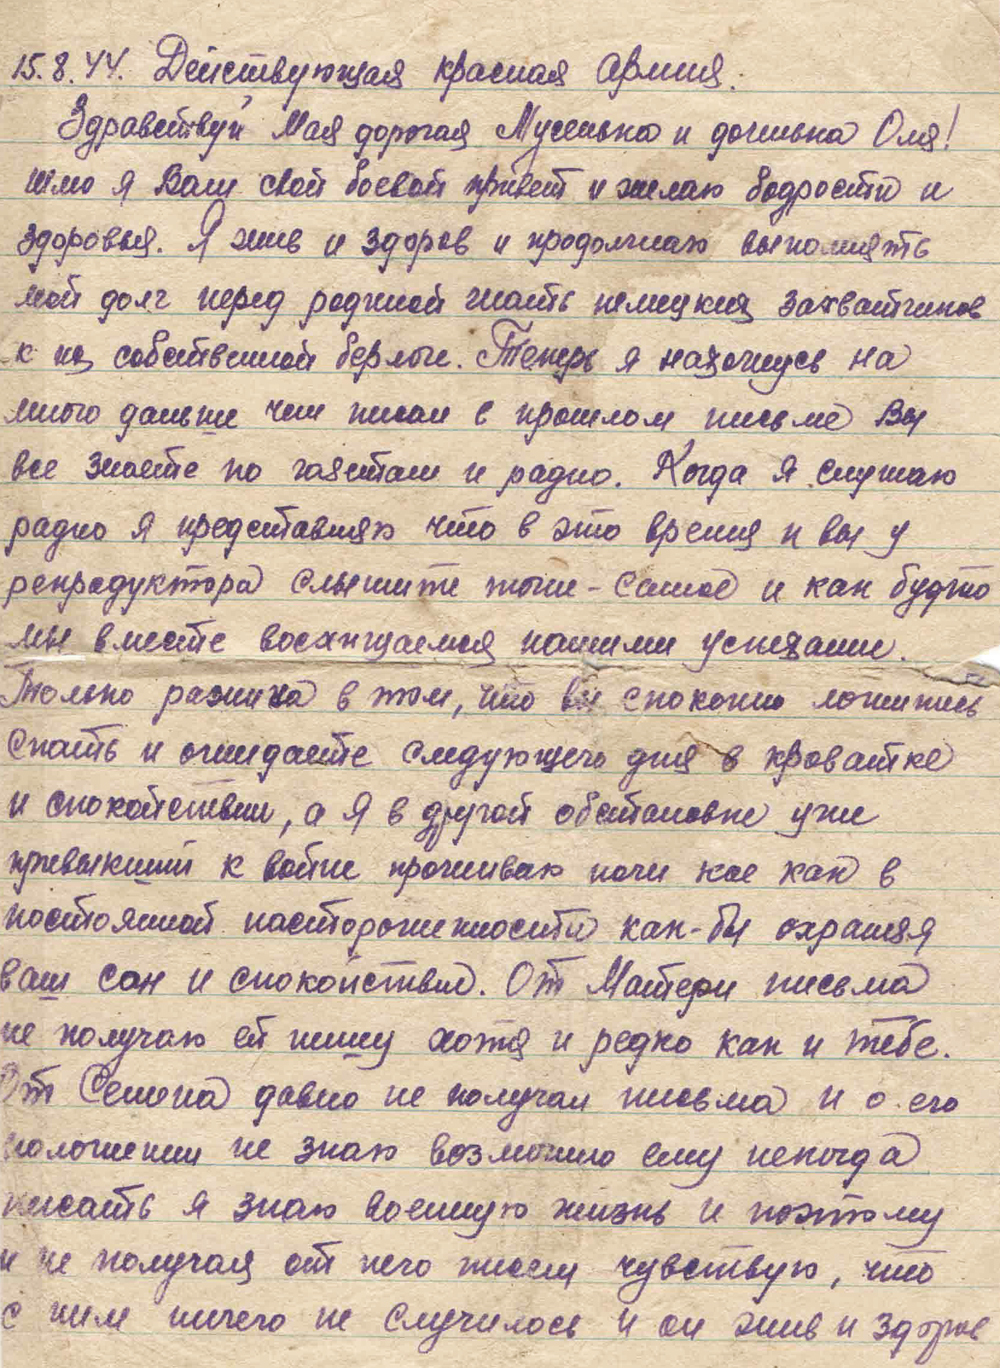 15.8.44. Действующая красная армия.
Здравствуй Мая дорогая Мусенька и доченька Оля!
шлю я Вам свой боевой привет и желаю бодрости и
здоровья. Я жив и здоров и продолжаю выполнять
мой долг перед родиной гнать немецких захватчиков
к их собственной берлоге. Теперь я нахожусь на
много дальше чем писал в прошлом письме Вы
все знаете по газетам и радио. Когда я слушаю
радио я представляю что в это время и вы у
репродуктора слышите тоже-самое и как будто
мы вместе восхищаемся нашими успехами.
Только разница в том, что вы спокойно ложитесь
спать и ожидаете следующего дня в кроватке
и спокойствии, а я в другой обстановке уже
привыкший к войне проживаю ночи кое как в
постоянной настороженности как-бы охраняя
ваш сон и спокойствие. От Матери письма
не получаю ей пишу хотя и редко как и тебе.
От Семена давно не получал письма и о его
положении не знаю возможно ему некогда
писать я знаю военную жизнь и поэтому
и не получая от него писем чувствую, что
с ним ничего не случилось и он жив и здоров